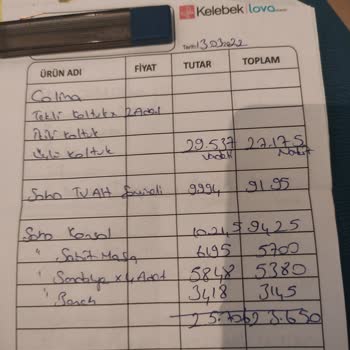 Kelebek lova
Tarih 13.03.2022
ÜRÜN ADI FİYAT TUTAR TOPLAM
Tekli Koltuk x 2 Adet
İkili Koltuk
Üçlü Koltuk 29.537 27.175
Vadeli Nakit
Soho TV Alt 9994 9195
Soho Konsol 10.245 9425
" Sabit Masa 6195 5700
" Sandalye x 4 Adet 5848 5380
" Bench 3418 3145
25.706 23.650